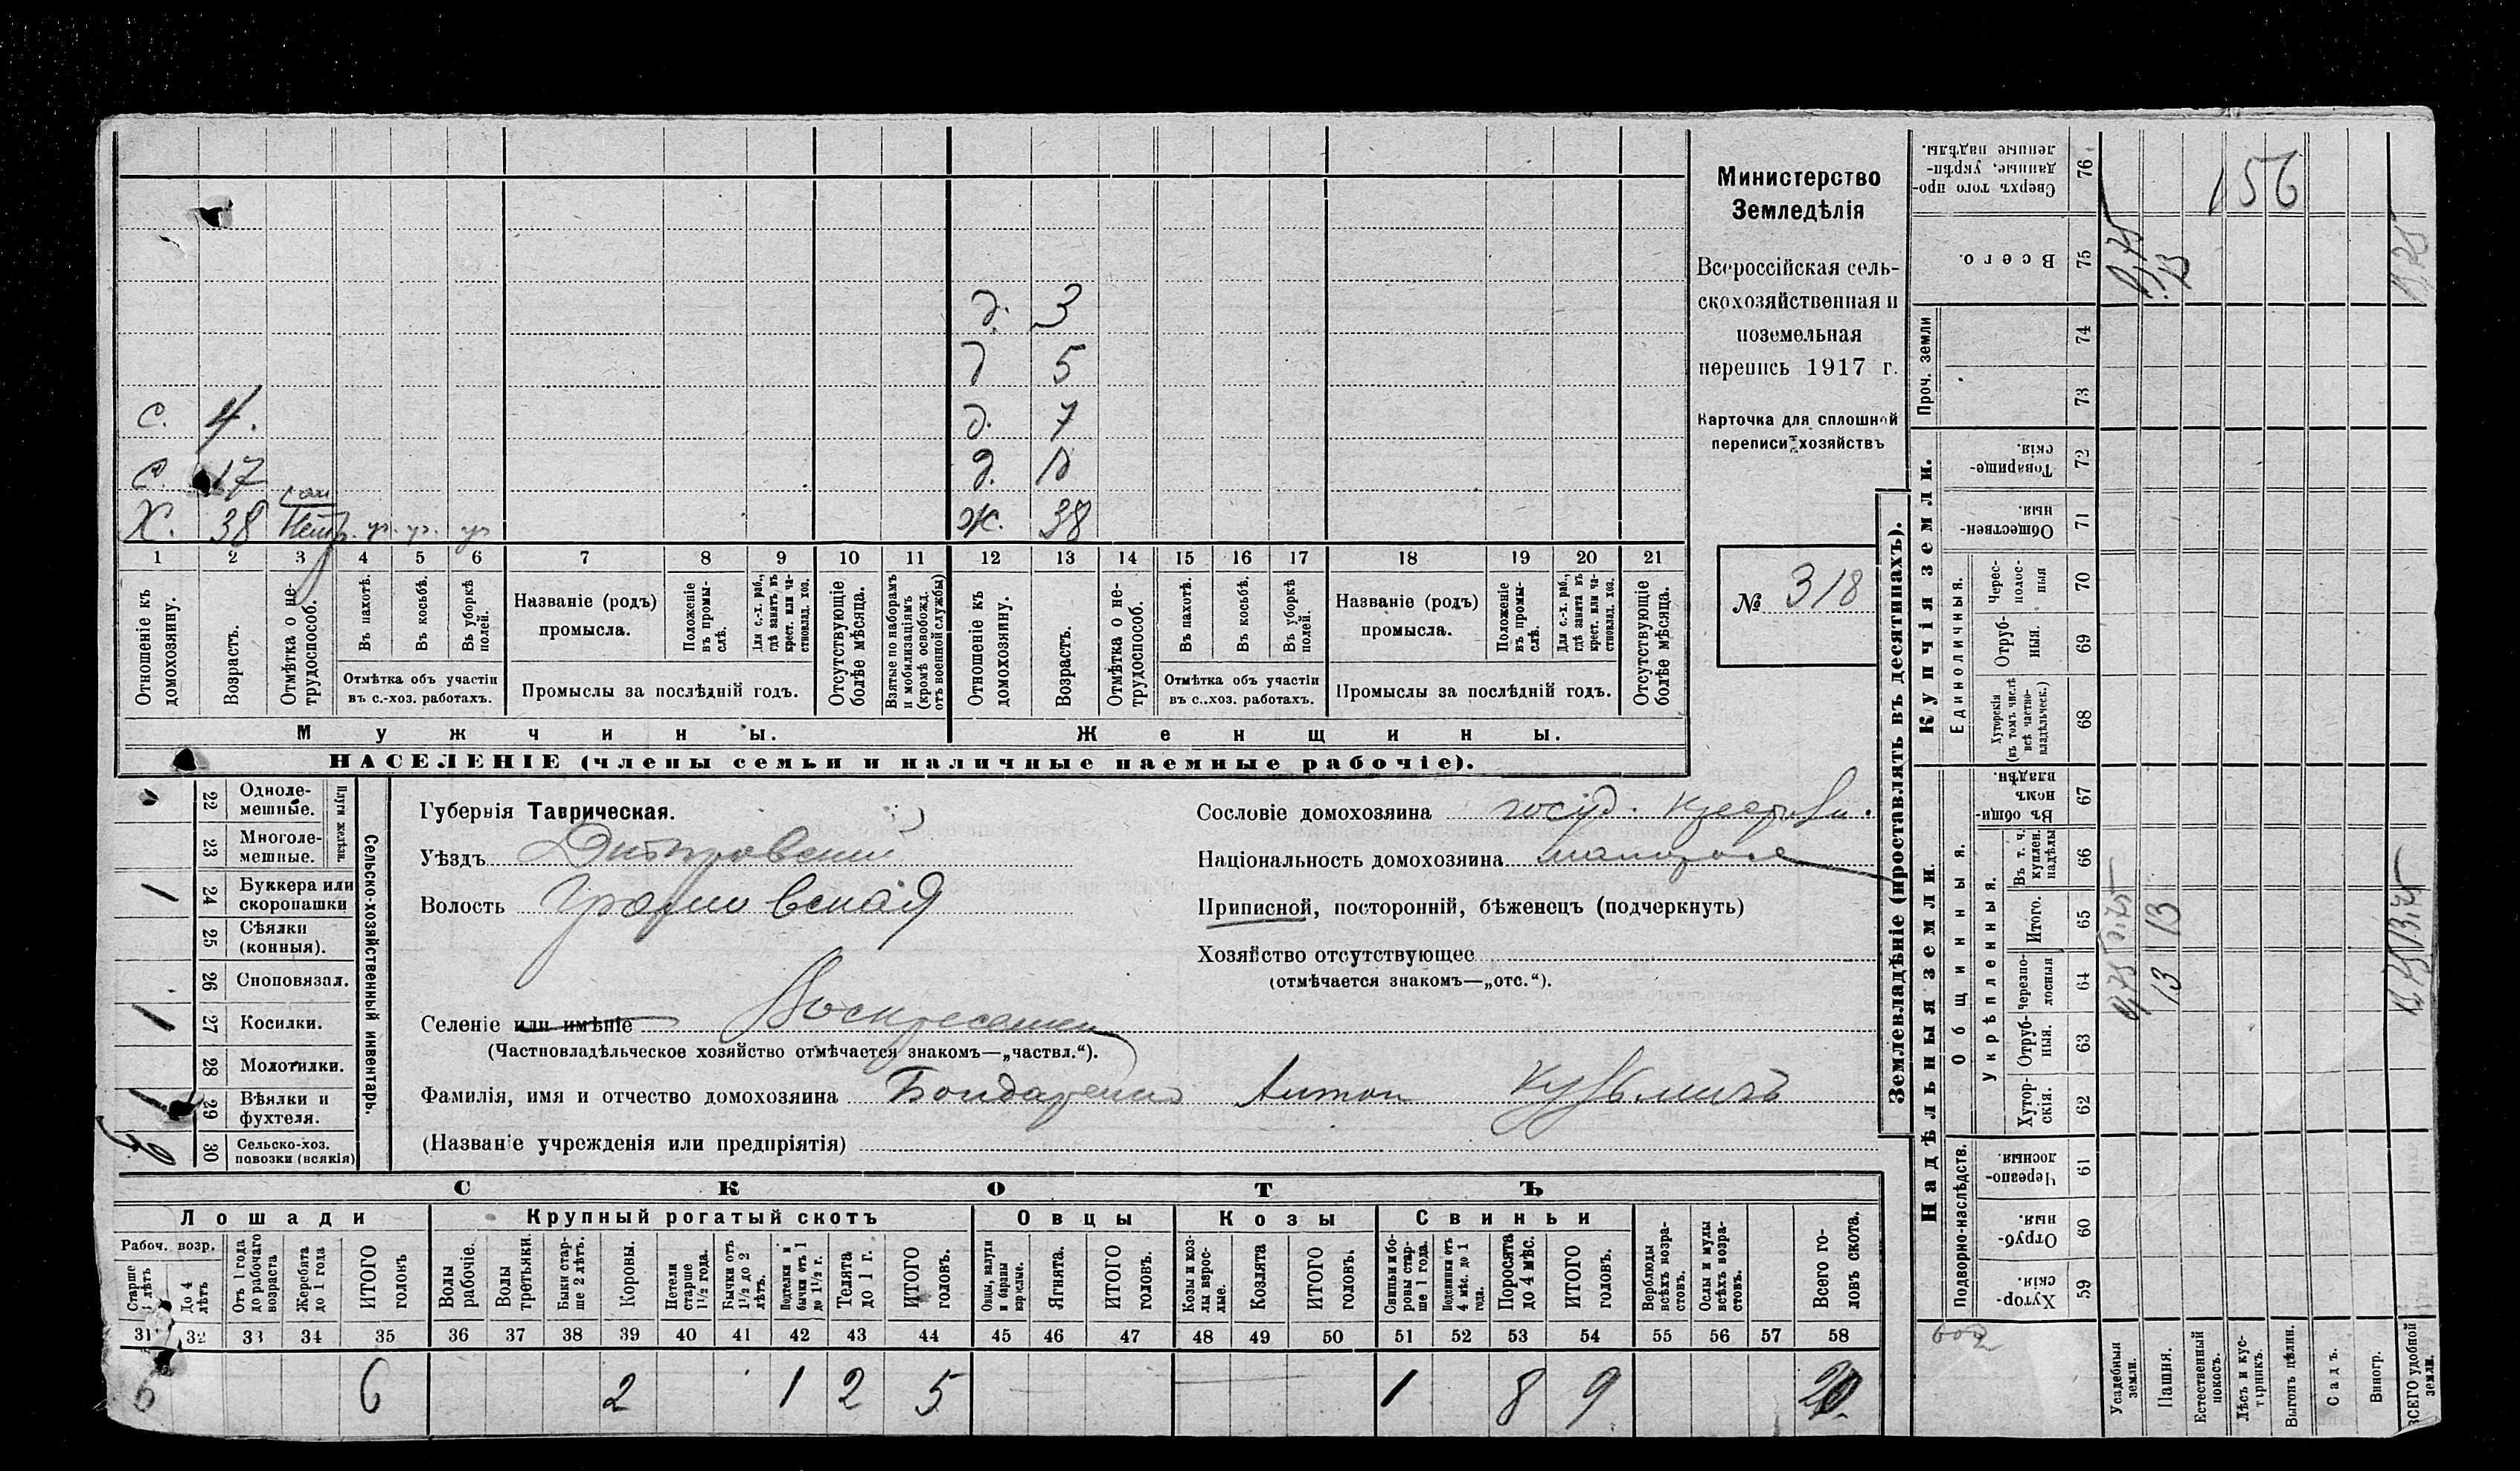 С. 4.
С 17
Х. 38
д. 3
д 5
д. 7
д.
ж. 38
1 2 3 4 5 6 7 8 9 10 11 12 13 14 15 16 17 18 19 20 21
Отношеніе къ домохозяину.
Возрастъ.
Отмѣтка о не-
трудоспособ.
Въ пахотѣ.
Въ косьбѣ.
Въ уборкѣ полей.
Отмѣтка объ участіи
въ с.-хоз. работахъ.
Названіе (родъ)
промысла.
Положеніе
въ промы-
слѣ.
Для с.-х. раб.,
гдѣ занятъ въ
крест. или ча-
стновлад. хоз.
Промыслы за послѣдній годъ.
Отсутствующіе
болѣе мѣсяца.
Взятые по наборамъ
и мобилизаціямъ
(кромѣ освобожд.
отъ военной службы)
Отношеніе къ
домохозяину.
Возрастъ.
Отмѣтка о не-
трудоспособ.
Въ пахотѣ.
Въ косьбѣ.
Въ уборкѣ
полей.
Отмѣтка объ участіи
въ с..хоз. работахъ.
Названіе (родъ)
промысла.
Положеніе
въ промы-
слѣ.
Для с.-х. раб.,
гдѣ занята въ
крест. или ча-
стновлад. хоз.
Промыслы за послѣдній годъ.
Отсутствующіе
болѣе мѣсяца.
Мужчины.
Женщины.
НАСЕЛЕНІЕ (члены семьи и наличные наемные рабочіе).
Министерство
Земледѣлія
Всероссійская сель-
скохозяйственная и
поземельная
перепись 1917 г.
Карточка для сплошной
переписи хозяйствъ
№ 318
22 Одноле-
мешные.
23 Многоле-
мешные.
Плуги желѣзн.
24 Буккера или
скоропашки
25 Сѣялки
(конныя).
26 Сноповязал.
27 Косилки.
28 Молотилки.
29 Вѣялки и
фухтеля.
30 Сельско-хоз.
повозки (всякія)
Сельско-хозяйственный инвентарь.
Губернія Таврическая.
Уѣздъ Днѣпровскій
Волость
Селеніе или имѣніе
(Частновладѣльческое хозяйство отмѣчается знакомъ—„частвл.“).
Фамилія, имя и отчество домохозяина Бондаренко Антон Кузьмичъ
(Названіе учрежденія или предпріятія)
Сословіе домохозяина госуд. крестьян.
Національность домохозяина малоросс
Приписной, посторонній, бѣженецъ (подчеркнуть)
Хозяйство отсутствующее
(отмѣчается знакомъ—„отс.“).
СКОТЪ
Лошади
Крупный рогатый скотъ
Овцы
Козы
Свиньи
Рабоч. возр.
Старше
4 лѣтъ
До 4
лѣтъ
Отъ 1 года
до рабочаго
возраста
Жеребята
до 1 года
ИТОГО
головъ
Волы
рабочіе.
Волы
третьяки.
Быки стар-
ше 2 лѣтъ.
Коровы.
Нетели
старше
1½ года.
Бычки отъ
1½ до 2
лѣтъ.
Подтелки и
бычки отъ 1
до 1½ г.
Телята
до 1 г.
ИТОГО
головъ.
Овцы, валухи
и бараны
взрослые.
Ягнята.
ИТОГО
головъ.
Козы и коз-
лы взрос-
лые.
Козлята
ИТОГО
головъ.
Свиньи и бо-
ровы стар-
ше 1 года.
Подсвинки отъ
4 мѣс. до 1
года.
Поросята
до 4 мѣс.
ИТОГО
головъ.
Верблюды
всѣхъ возра-
стовъ.
Ослы и мулы
всѣхъ возра-
стовъ.
Всего го-
ловъ скота.
31 32 33 34 35 36 37 38 39 40 41 42 43 44 45 46 47 48 49 50 51 52 53 54 55 56 57 58
6 6 2 1 2 5 1 8 9 20
Землевладѣніе (проставлять въ десятинахъ).
Сверхъ того про-
данные, укрѣп-
ленные надѣлы.
76
156
Всего.
75
Проч. земли
74
73
Купчія земли.
Товарище-
скія.
72
Обществен-
ныя.
71
Единоличныя.
Черес-
полос-
ныя
70
Отруб-
ныя.
69
Хуторскія
(въ томъ числѣ
всѣ частно-
владѣльческ.)
68
Надѣльныя земли.
Общинныя.
Въ общи-
нномъ
владѣн.
67
Укрѣпленныя.
Въ т. ч.
куплен.
надѣлы
66
Итого.
65
13
Черезпо-
лосныя
64
13
Отруб-
ныя.
63
Хутор-
скія.
62
Подворно-наслѣдств.
Черезпо-
лосныя
61
Отруб-
ныя.
60
Хутор-
скія.
59
Усадебныя
земли.
Пашня.
Естественный
покосъ.
Лѣсъ и кус-
тарникъ.
Выгонъ цѣлин.
Садъ.
Виногр.
ВСЕГО удобной
земли.